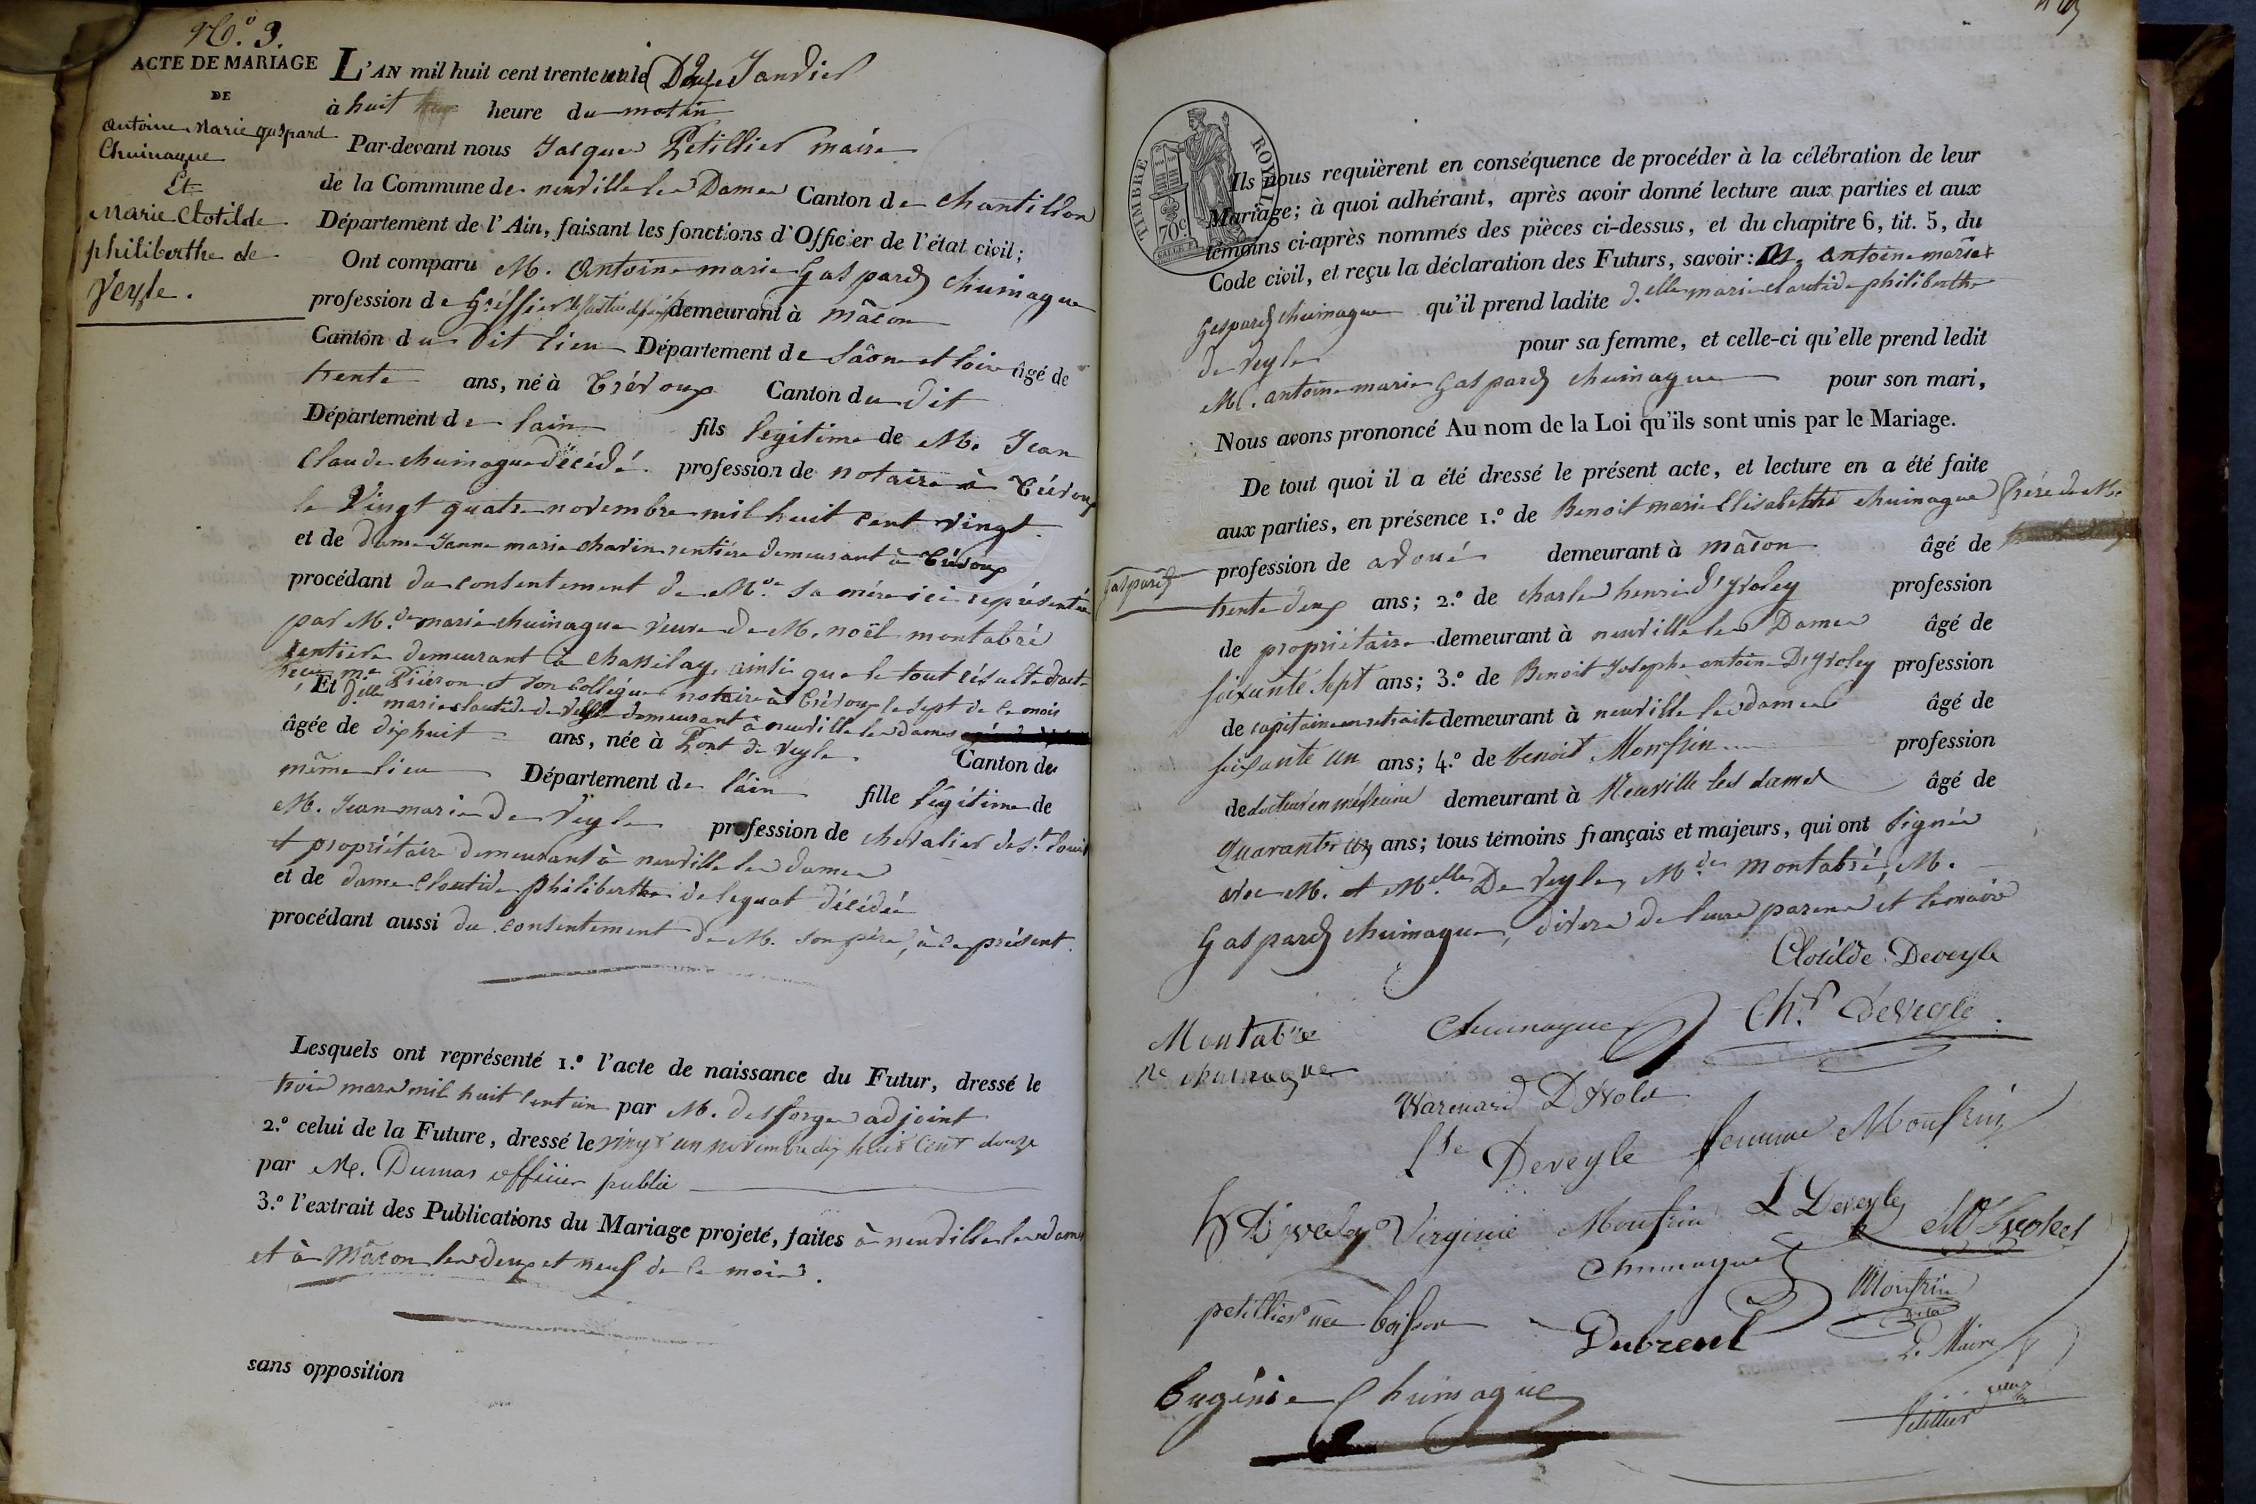 N.o 3.
ACTE DE MARIAGE
DE
Antoine Marie gaspard
Chuinague
Et
Marie Clotilde
philiberthe de
Veyle.
L'AN mil huit cent trente un le Douze Janvier
à huit heure du matin
Par-devant nous Jacques Petillier maire
de la Commune de neuville les Dames Canton de chantillon
Département de l'Ain, faisant les fonctions d'Officier de l'état civil;
Ont comparu M. Antoine marie Gaspard chuinague
profession de Gréffier demeurant à mâcon
Canton du Dit lieu Département de Saône et loire âgé de
trente ans, né à Trévoux Canton du dit
Département de lain fils légitime de M. Jean
Claude chuinague décédé profession de notaire à Trévoux
le Vingt quatre novembre mil huit cent vingt
et de dame Janne marie chavin rentière demeurant à Trévoux
procédant du consentement de Mde sa mère ici représentée
par M.de marie chuinague veuve de M. noël montabré
rentière demeurant à chasselay, ainsi que le tout résulte d'acte
reçu me Piéron et son collègue notaire à Trévoux le sept de ce mois
Et d.elle marie clautide de Veyle demeurant à neuville les dames
âgée de dixhuit ans, née à Pont de Veyle Canton de
même lieu Département de láin fille légitime de
M. Jean marie de Veyle profession de chevalier de St. louis
et propriétaire demeurant à neuville les dames
et de dame Cloutide philiberthe de lequat décédée
procédant aussi du consentement de M. son père, à ce présent.
Lesquels ont représenté 1.o l'acte de naissance du Futur, dressé le
trois mars mil huit cent un par M. desforges adjoint
2.o celui de la Future, dressé le vingt un novembre dix huit cent douze
par M. Dumas officier public
3.o l'extrait des Publications du Mariage projeté, faites à neuville les dames
et à Mâcon les deux et neuf de ce mois.
sans opposition
TIMBRE ROYAL
70c
Ils nous requièrent en conséquence de procéder à la célébration de leur
Mariage; à quoi adhérant, après avoir donné lecture aux parties et aux
témoins ci-après nommés des pièces ci-dessus, et du chapitre 6, tit. 5, du
Code civil, et reçu la déclaration des Futurs, savoir: M. antoine marie
Gaspard chuinague qu'il prend ladite d.elle marie clautide philiberthe
de veyle pour sa femme, et celle-ci qu'elle prend ledit
M. antoine marie Gaspard chuinague pour son mari,
Nous avons prononcé Au nom de la Loi qu'ils sont unis par le Mariage.
De tout quoi il a été dressé le présent acte, et lecture en a été faite
aux parties, en présence 1.o de Benoit marie Elisabethe chuinague frére de M.
gaspard
profession de avoué demeurant à mâcon âgé de
trente deux ans; 2.o de charles henri d'yvoley profession
de propriétaire demeurant à neuville les Dames âgé de
soixante sept ans; 3.o de Benoit Josephe antoine Dyvoley profession
de capitaine en retraite demeurant à neuville les dames âgé de
soixante un ans; 4.o de benoit Monfrin profession
de docteur en médecine demeurant à Neuville les dames âgé de
quarante un ans; tous témoins français et majeurs, qui ont signés
avec M. et Melle De Veyle, Mde montabré, M.
Gaspard chuinague, divers de leurs parens et le maire
Clotilde Deveyle
Montabré
née chuinague
Chuinague
Ch.r Deveyle.
Deveyle femme Monfrin
Virginie Monfrin
L Deveyle
Chuinague
Monfrin
petillier née boisson
Dubreul
Le Maire
Eugénie Chuinague
Petillier